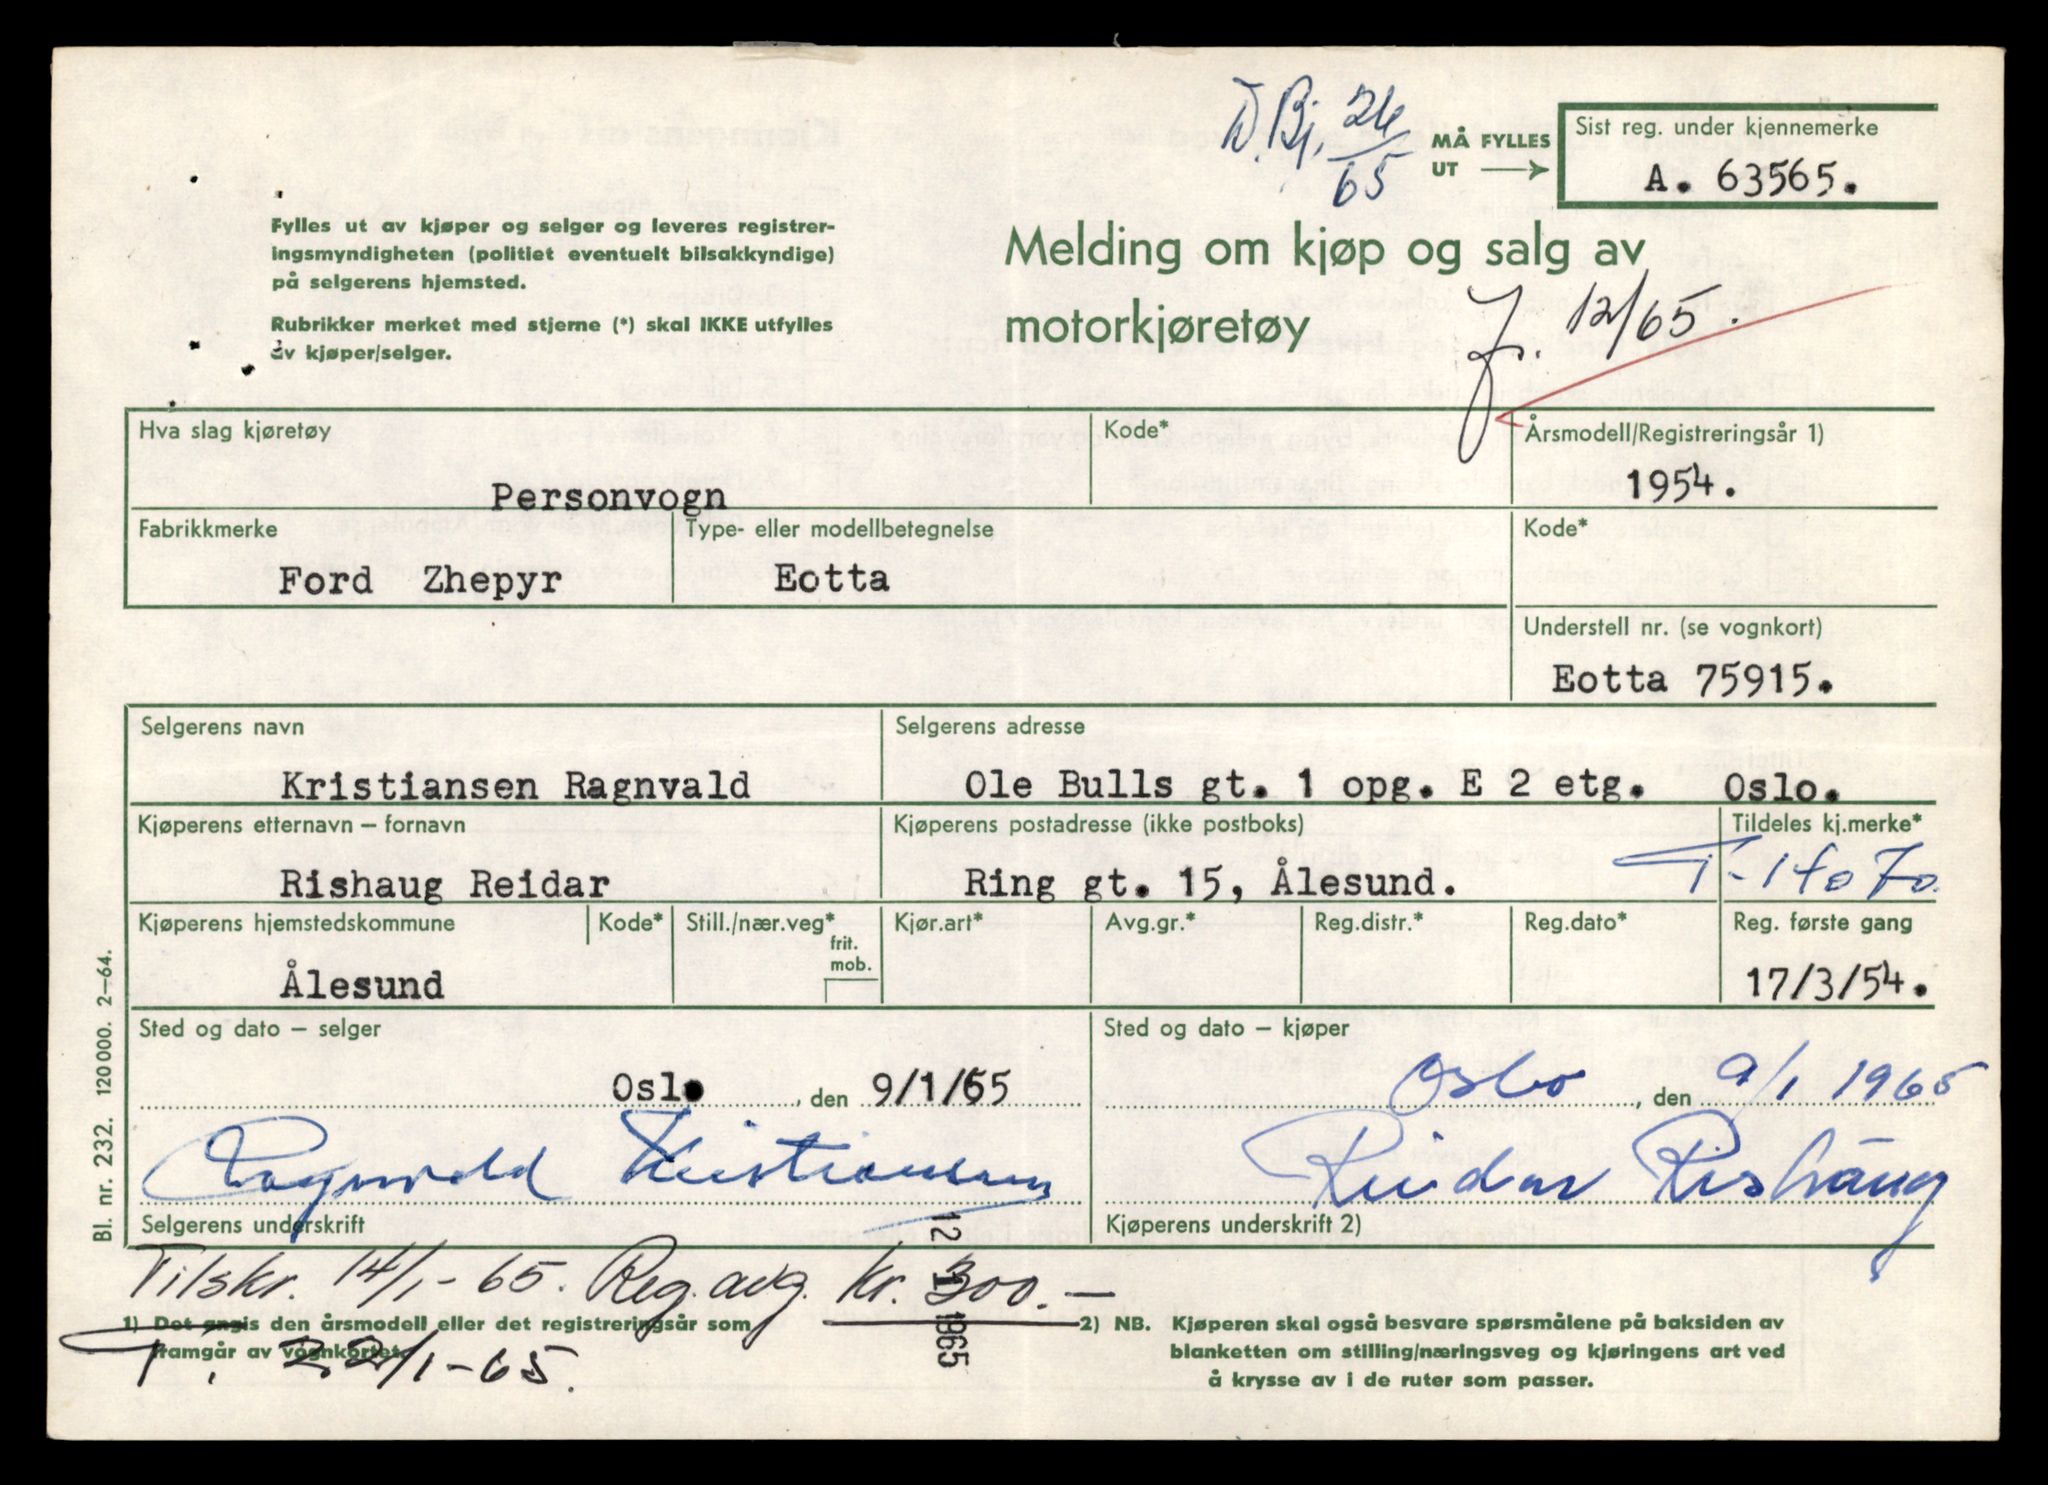 D. Bj. 26/65
MÅ FYLLES UT
Sist reg. under kjennemerke
A. 63565.
Fylles ut av kjøper og selger og leveres registrer-
ingsmyndigheten (politiet eventuelt bilsakkyndige)
på selgerens hjemsted.
Rubrikker merket med stjerne (*) skal IKKE utfylles
av kjøper/selger.
Melding om kjøp og salg av
motorkjøretøy
12/65.
Hva slag kjøretøy
Personvogn
Kode*
Årsmodell/Registreringsår 1)
1954.
Fabrikkmerke
Ford Zhepyr
Type- eller modellbetegnelse
Eotta
Kode*
Understell nr. (se vognkort)
Eotta 75915.
Selgerens navn
Kristiansen Ragnvald
Selgerens adresse
Ole Bulls gt. 1 opg. E 2 etg. Oslo.
Kjøperens etternavn – fornavn
Rishaug Reidar
Kjøperens postadresse (ikke postboks)
Ring gt. 15, Ålesund.
Tildeles kj.merke*
T-14070.
Kjøperens hjemstedskommune
Ålesund
Kode*
Still./nær.veg*
frit.
mob.
Kjør.art*
Avg.gr.*
Reg.distr.*
Reg.dato*
Reg. første gang
17/3/54.
Sted og dato – selger
Oslo, den 9/1/65
Ragnvald Kristiansen
Selgerens underskrift
Sted og dato – kjøper
Oslo, den 9/1 1965
Reidar Rishaug
Kjøperens underskrift 2)
Bl. nr. 232. 120000. 2–64.
Tilskr. 14/1-65. Reg.avg. kr. 300.-
12 1 1965
1) Det angis den årsmodell eller det registreringsår som
framgår av vognkortet.
T. 22/1-65.
2) NB. Kjøperen skal også besvare spørsmålene på baksiden av
blanketten om stilling/næringsveg og kjøringens art ved
å krysse av i de ruter som passer.